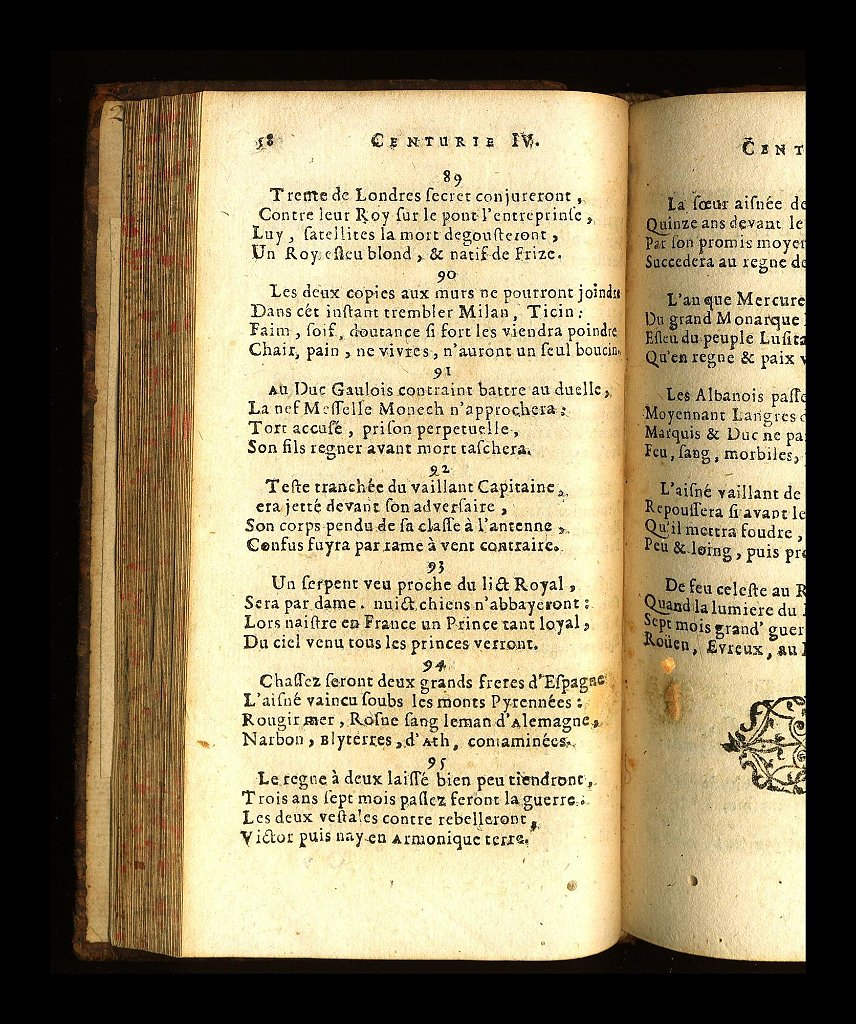 58 CENTURIE IV.
89
Trente de Londres ſecret conjureront,
Contre leur Roy ſur le pont l'entreprinſe,
Luy, ſatellites la mort degouſteront,
Un Roy eſleu blond, & natif de Frize.
90
Les deux copies aux murs ne pourront joindre
Dans cét inſtant trembler Milan, Ticin:
Faim, ſoif, doutance ſi fort les viendra poindre
Chair, pain, ne vivres, n'auront un ſeul boucin.
91
Au Duc Gaulois contraint battre au duelle,
La nef Meſſelle Monech n'approchera:
Tort accuſé, priſon perpetuelle,
Son fils regner avant mort taſchera.
92
Teſte tranchée du vaillant Capitaine,
era jetté devant ſon adverſaire,
Son corps pendu de ſa claſſe à l'antenne,
Confus fuyra par rame à vent contraire.
93
Un ſerpent veu proche du lict Royal,
Sera par dame. nuict chiens n'abbayeront:
Lors naiſtre en France un Prince tant loyal,
Du ciel venu tous les princes verront.
94
Chaſſez ſeront deux grands freres d'Eſpagne
L'aiſné vaincu ſoubs les monts Pyrennées:
Rougir mer, Roſne ſang leman d'Alemagne,
Narbon, Blyterres, d'Ath, contaminées.
95
Le regne à deux laiſſé bien peu tiendront,
Trois ans ſept mois paſſez feront la guerre:
Les deux veſtales contre rebelleront,
Victor puis nay en Armonique terre.
CENT
La ſœur aiſnée de
Quinze ans devant le
Par ſon promis moyen
Succedera au regne de
L'an que Mercure
Du grand Monarque
Eſleu du peuple Luſita
Qu'en regne & paix v
Les Albanois paſſe
Moyennant Langres d
Marquis & Duc ne pa
Feu, ſang, morbiles,
L'aiſné vaillant de
Repouſſera ſi avant le
Qu'il mettra foudre,
Peu & loing, puis pro
De feu celeſte au R
Quand la lumiere du
Sept mois grand' guer
Roüen, Evreux, au